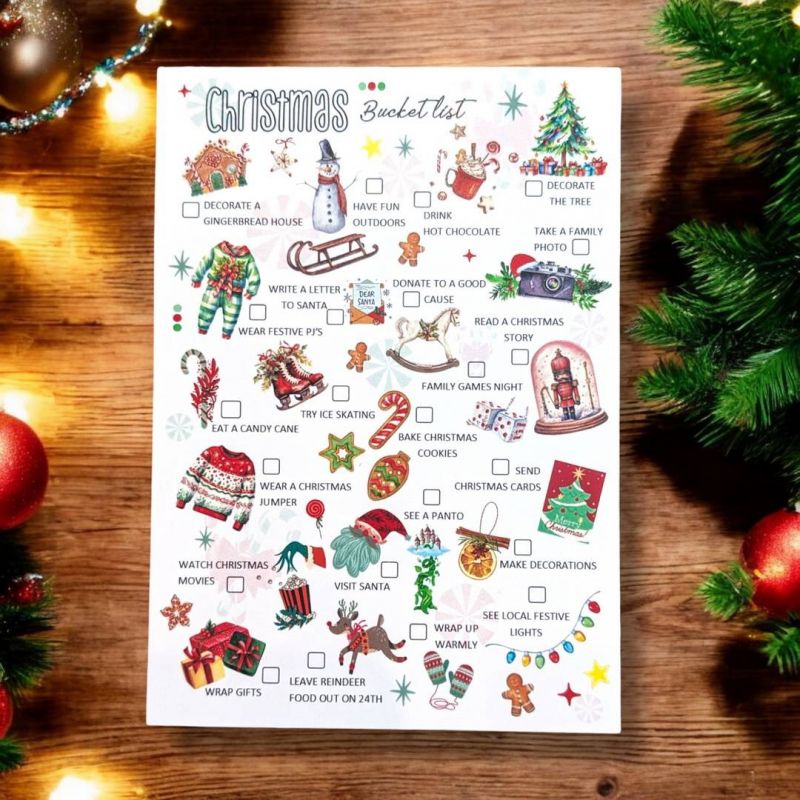 Christmas Bucket list
DECORATE A
GINGERBREAD HOUSE
HAVE FUN
OUTDOORS
DRINK
HOT CHOCOLATE
DECORATE
THE TREE
TAKE A FAMILY
PHOTO
WRITE A LETTER
TO SANTA
DEAR
SANTA
DONATE TO A GOOD
CAUSE
WEAR FESTIVE PJ'S
READ A CHRISTMAS
STORY
FAMILY GAMES NIGHT
TRY ICE SKATING
EAT A CANDY CANE
BAKE CHRISTMAS
COOKIES
WEAR A CHRISTMAS
JUMPER
SEND
CHRISTMAS CARDS
Merry
Christmas
SEE A PANTO
WATCH CHRISTMAS
MOVIES
VISIT SANTA
MAKE DECORATIONS
SEE LOCAL FESTIVE
LIGHTS
WRAP UP
WARMLY
WRAP GIFTS
LEAVE REINDEER
FOOD OUT ON 24TH